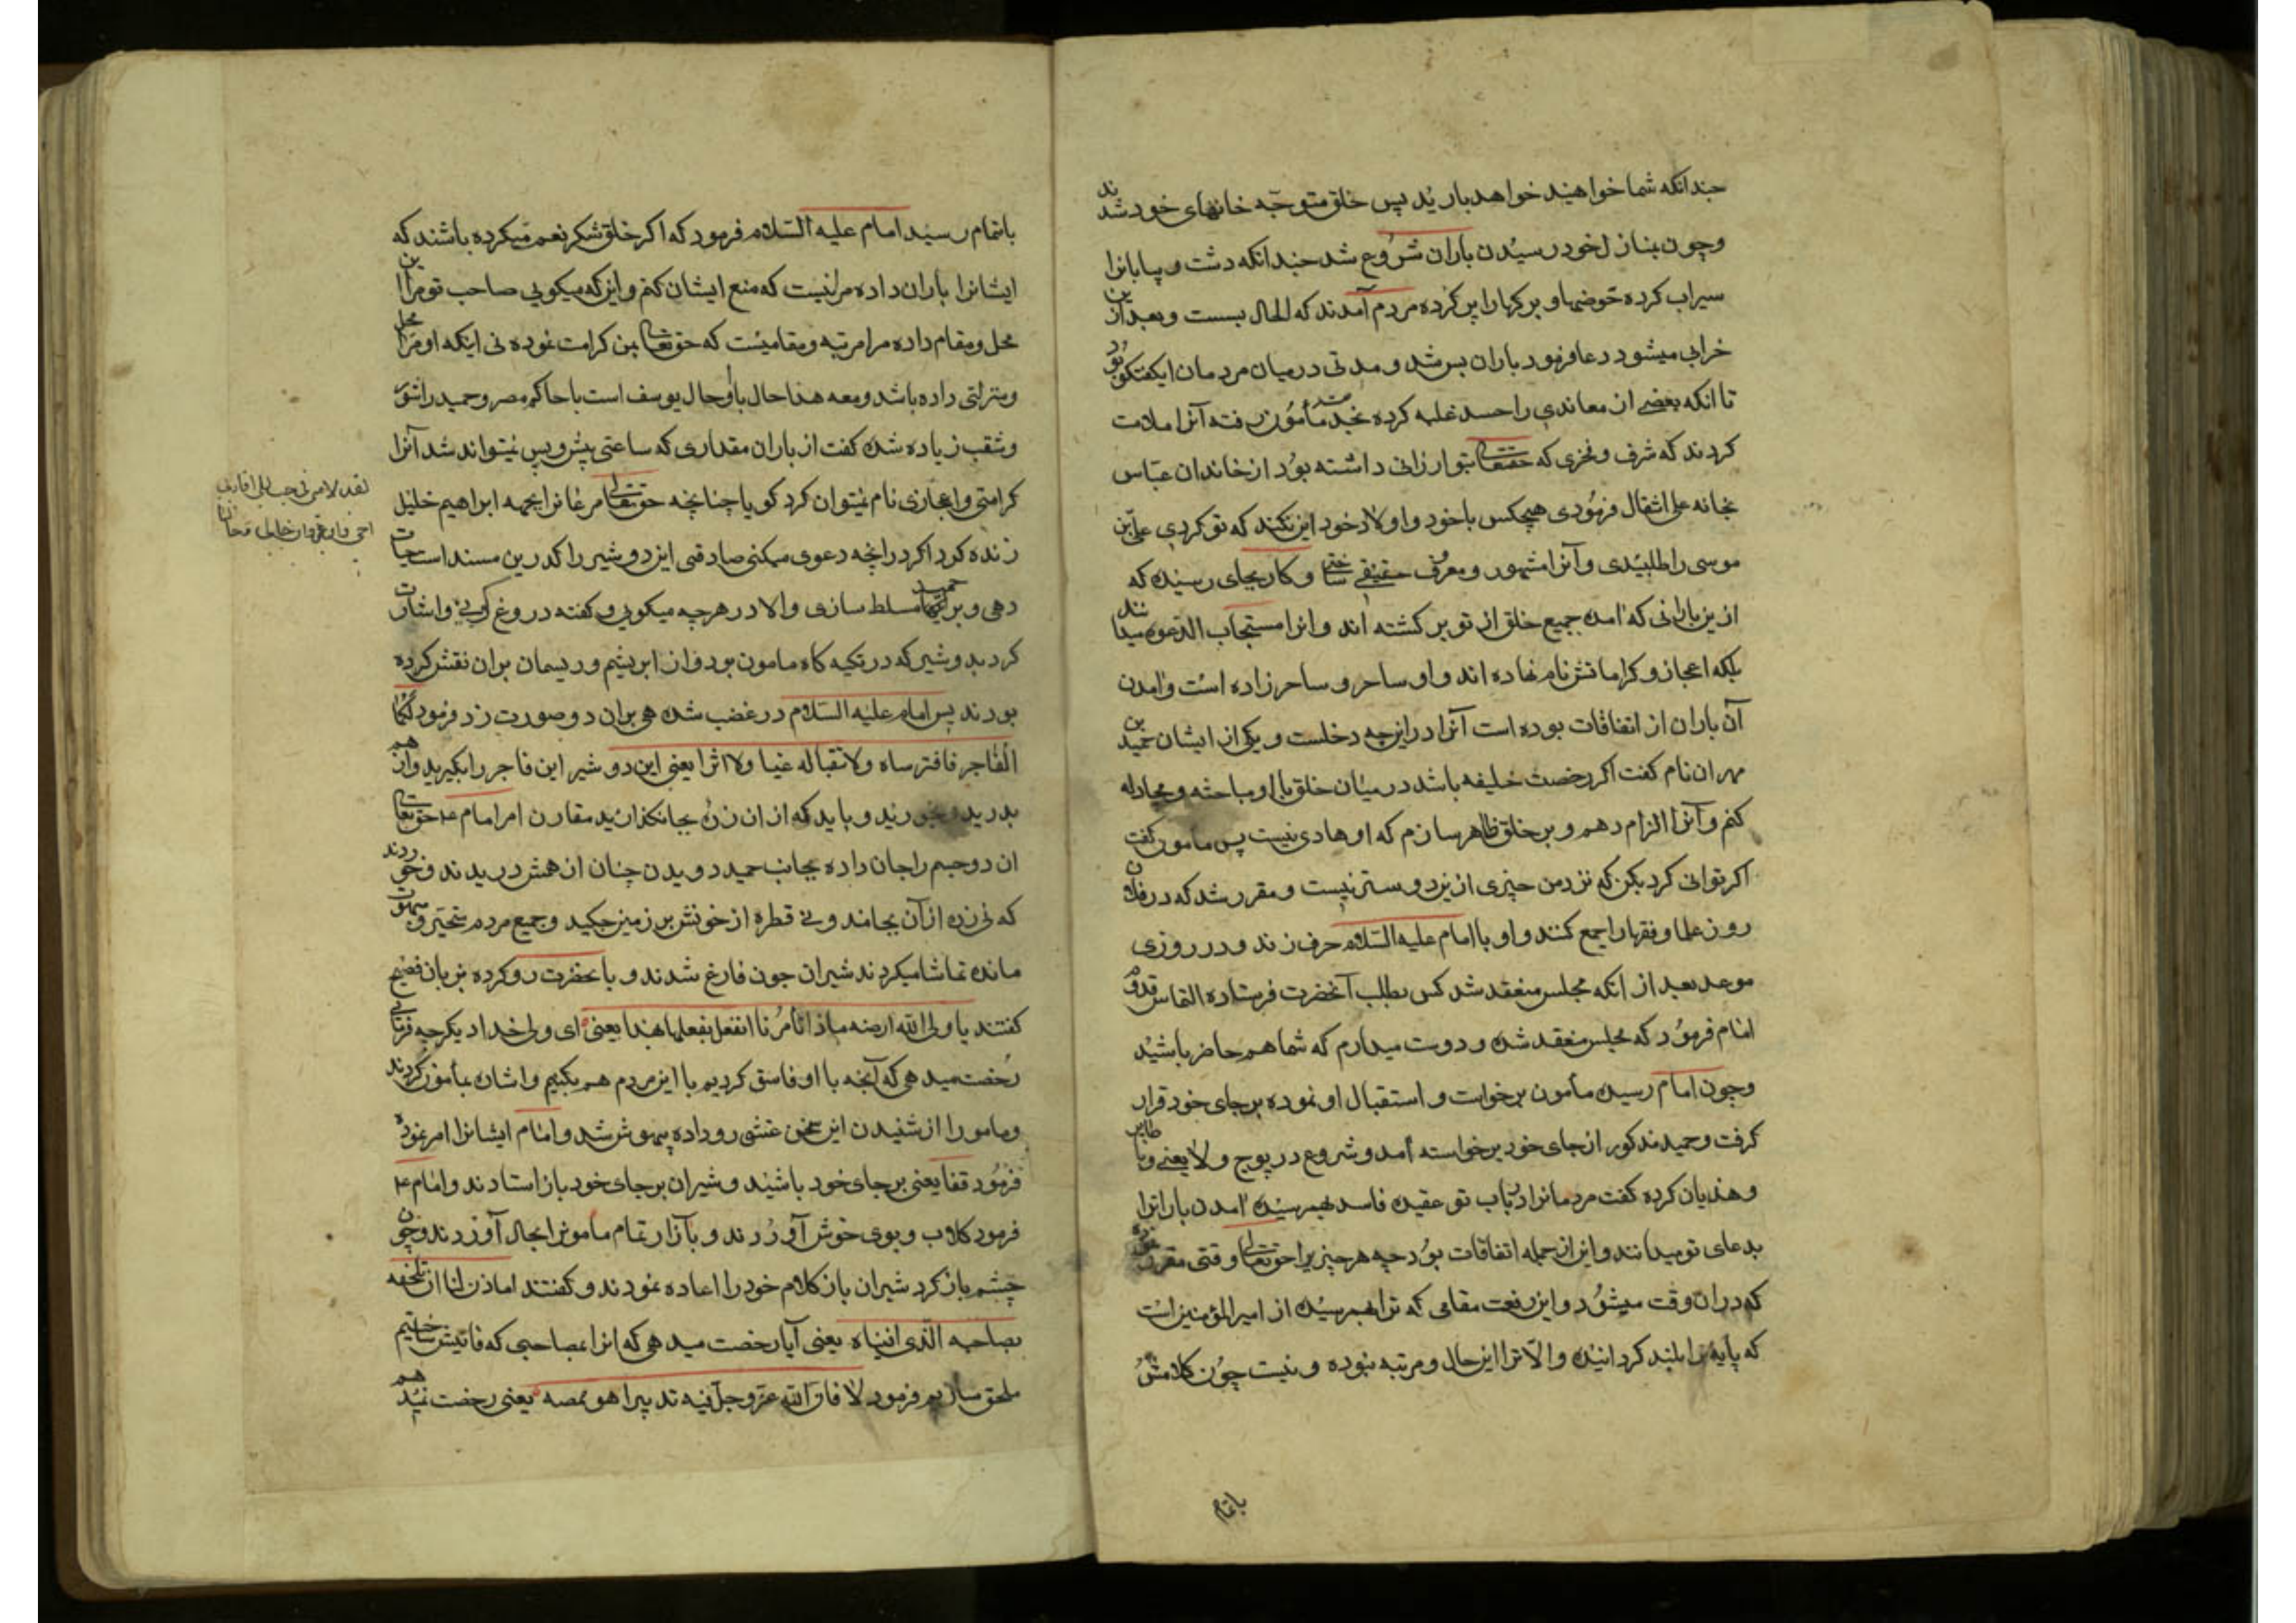 چندانکه شما خواهید خواهد بارید پس خلق متوجّه خانهای خود شدند
وچون بمنازل خود رسیدن باران شروع شد چندانکه دشت و بیابانرا
سیراب کرده حوضها و برکها را پر کرده مردم آمدند که الحال بسست و بعد ازین
خرابی میشود دعا فرمود باران بس شد و مدتی در میان مردمان این گفتگو بود
تا انکه بعضی از معاندی را حسد غلبه کرده بخدمت مأمون رفته آنرا ملامت
کردند که شرف و فخری که حقتعالی بتو ارزانی داشته بود از خاندان عبّاس
بخانه علی انتقال فرمودی هیچکس با خود و اولاد خود این نکند که تو کردی علی بن
موسی را طلبیدی و آنرا مشهور و معرف حقیقی ساختی و کار بجای رسیده که
ازین بارانی که امده جمیع خلق از تو برکشته اند و انرا مستجاب الدعوه میدانند
بلکه اعجاز و کراماتش نام نهاده اند و او ساحر و ساحرزاده است و امدن
آن باران از اتفاقات بوده است آنرا در این چه دخلست و یکی از ایشان حمید بن
مهران نام کفت اکر رخصت خلیفه باشد در میان خلق با او مباحثه و مجادله
کنم و آنرا الزام دهم و بر خلق ظاهر سازم که او هادی نیست پس مامون کفت
اکر توانی کرد بکن که نزد من چیزی ازین دوستر نیست و مقرر شد که در فلان
روز علما و فقها را جمع کنند و او با امام علیه السّلام حرف زند و در روزی
موعد بعد از انکه مجلس منعقد شد کس بطلب آنحضرت فرستاده التماس قدوم
امام فرمود که مجلس منعقد شده و دوست میدارم که شما هم حاضر باشید
وچون امام رسیده مأمون برخواست و استقبال او نموده بر جای خود قرار
کرفت و حمید مذکور از جای خود برخواسته آمد و شروع در پوچ و لا یعنی و
و هذیان کرده کفت مردمانرا در باب تو عقیده فاسد بهم رسیده امدن بارانرا
بدعای تو میدانند و این از جمله اتفاقات بود چه هر چیزیرا حق تعالی وقتی مقرر نموده
که در ان وقت میشود و این رفعت مقامی که ترا بهم رسیده از امیر المؤمنین است
که پایه ترا بلند کردانیده والّا ترا این حال و مرتبه نبوده و نیست چون کلامش
باتمام
باتمام رسید امام علیه السّلام فرمود که اکر خلق شکر نعم میکرده باشند که
ایشانرا باران داده مرا نیست که منع ایشان کنم و این که میکویی صاحب تو مرا این
محل و مقام داده مرا مرتبه و مقامیست که حق تعالی بمن کرامت نموده نی اینکه او مرا محل
و منزلتی داده باشد و معه هذا حال با او حال یوسف است با حاکم مصر و حمید را شور
و شقب زیاده شده کفت از باران مقداری که ساعتی پیش و پس نمیتواند شد آنرا
کرامتی و اعجازی نام نمیتوان کرد کویا چنانچه حق تعالی مرغانرا بجهه ابراهیم خلیل
زنده کرد اکر در انچه دعوی میکنی صادقی این دو شیر را که درین مسند است حیات
دهی و بر مسلط سازی والا در هر چه میکویی و کفته دروغ کویی و اشارت
کرد بدو شیر که در تکیه کاه مامون بود و از ابریشم و ریسمان بر ان نقش کرده
بودند پس امام علیه السّلام در غضب شده هی بران دو صورت زد فرمود
الفاجر فافترساه ولا تبقیا له عینا ولا اثرا یعنی این دو شیر این فاجر را بکیرید و از هم
بدرید و بخورید و باید که از ان بجا نکذارید مقارن امر امام ع حق تعالی
ان دو جسم را جان داده بجانب حمید دویدن چنان از همش دریدند و خوردند
که نی از آن بجا ماند و نی قطره از خونش بر زمین چکید و جمیع مردم متحیّر و مبهوت
مانده تماشا میکردند شیران چون فارغ شدند و بانحضرت رو کرده بزبان فصیح
کفتند یا ولی الله فی ارضه ماذا تامرنا انفعل بفعلها هذا یعنی ای ولی خدا دیکر چه فرمائی
رخصت میدهی که آنچه با او فاسق کردیم با این مردم هم بکنیم و اشان بمأمون کردند
و مامو را از شنیدن این سخن غشی رو داده بیهوش شد و امام ایشانرا امر نموده
فرمود قفا یعنی بر جای خود باشید و شیران بر جای خود باز استادند و امام ع
فرمود کلاب و بوی خوش آوردند و بآزار تمام مامونرا بحال آوردند و چون
چشم باز کرد شیران باز کلام خود را اعاده نمودند و کفتند اماذن لنا ان نلحقه
بصاحبه الّذی افنیناه یعنی آیا رخصت میدهی که انرا بمصاحبی که فانیش ساختیم
ملحق سازیم فرمود لا فان الله عزّ وجلّ فیه تدبیرا هو ممضیه یعنی رخصت نمیدهم